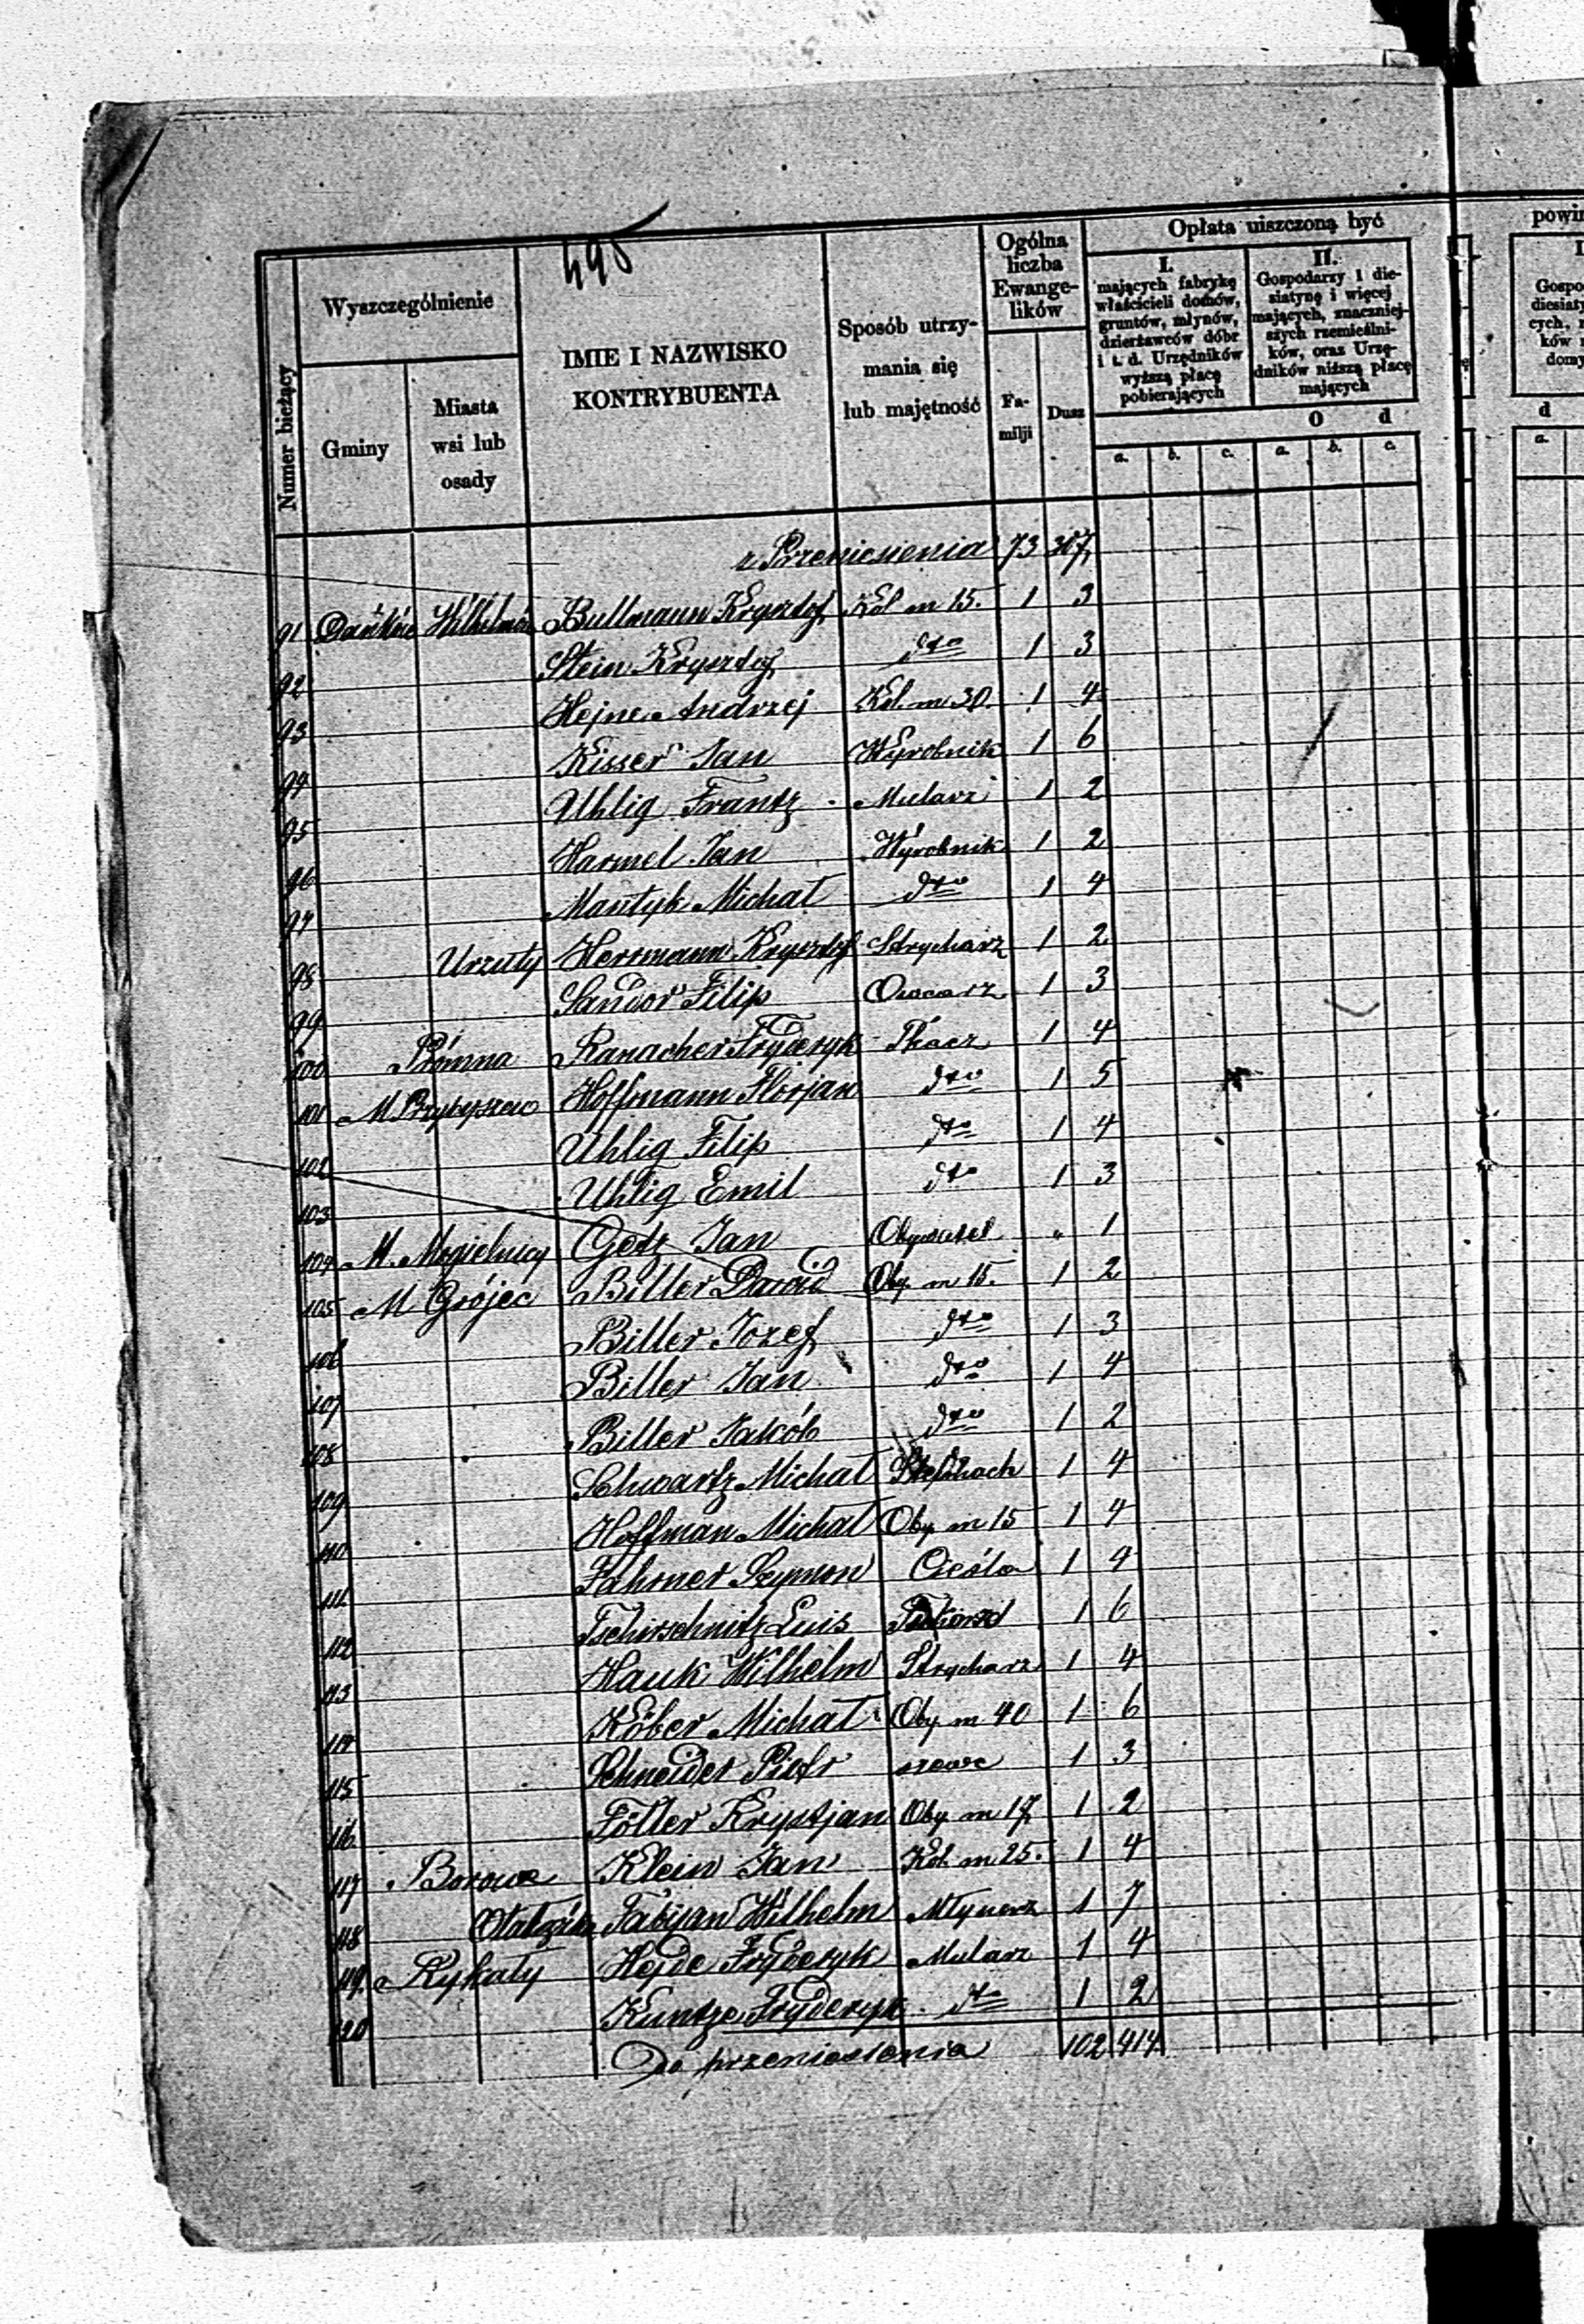 498
Numer bieżący
Wyszczególnienie
Gminy
Miasta
wsi lub
osady
IMIE I NAZWISKO
KONTRYBUENTA
Sposób utrzy-
mania się
lub majętność
Ogólna
liczba
Ewange-
lików
Fa-
milji
Dusz
Opłata uiszczoną być
I.
mających fabrykę
właścicieli domów,
gruntów, młynów,
dzierżawców dóbr
i t. d. Urzędników
wyższą płacę
pobierających
II.
Gospodarzy 1 die-
siatynę i więcej
mających, znaczniej-
szych rzemieślni-
ków, oraz Urzę-
dników niższą płacę
mających
O d
a. b. c. a. b. c.
powin
Gospo
diesiat
cych, r
ków
domy
d
a.
z Przeniesienia 73 307
91 Dańków Wilhelmów Bullmann Krysztof Kol m 15. 1 3
92 Stein Krysztof dto 1 3
93 Hejne Andrzej Kol. m 30. 1 4
94 Kisser Jan Wyrobnik 1 6
95 Uhlig Frantz Mularz 1 2
96 Harmel Jan Wyrobnik 1 2
97 Mantyk Michał dto 1 4
98 Urzuty Herrmann Krysztof Strycharz 1 2
99 Sandor Filip Owocarz 1 3
100 Promna Ranacher Fryderyk Tkacz 1 4
101 M. Przybyszew Hoffmann Florjan dto 1 5
102 Uhlig Filip dto 1 4
103 Uhlig Emil dto 1 3
104 M. Mogielnicy Getz Jan Obywatel " 1
105 M Grójec Biller Dawid Oby. m 15. 1 2
106 Biller Jozef dto 1 3
107 Biller Jan dto 1 4
108 Biller Jakób dto 1 2
109 Schwartz Michał 1 4
110 Hoffman Michał Oby. m 15 1 4
111 Fahrner Szymon Cieśla 1 4
112 Tschirschnitz Luis 1 6
113 Hauk Wilhelm Strycharz 1 4
114 Köber Michał Oby. m 40 1 6
115 Schneider Piotr szewc 1 3
116 Föller Krystjan Oby m 17 1 2
117 Borowe Klein Jan Kol. m 25. 1 4
118 Fabijan Wilhelm Młynarz 1 7
119. Rykały Hejde Fryderyk Mularz 1 4
120 Kuntze Fryderyk dto 1 2
Do przeniesienia 102 414